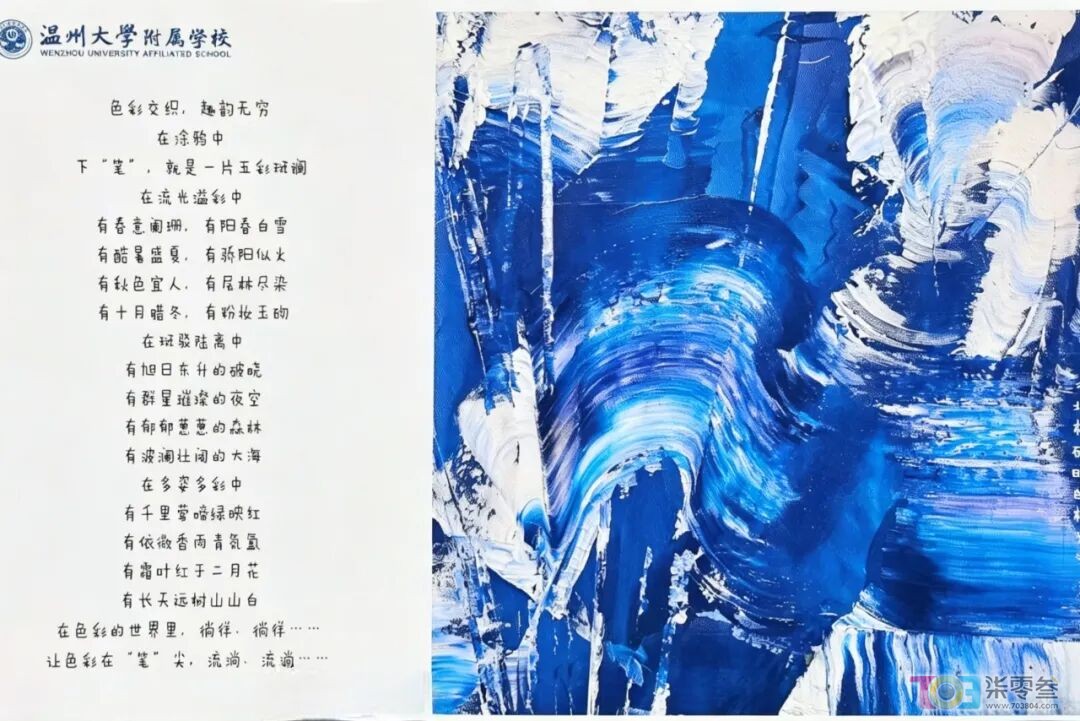 温州大學附属学校
WENZHOU UNIVERSITY AFFILIATED SCHOOL
色彩交织，趣韵无穷
在涂鸦中
下“笔”，就是一片五彩斑斓
在流光溢彩中
有春意阑珊，有阳春白雪
有酷暑盛夏，有骄阳似火
有秋色宜人，有层林尽染
有十月腊冬，有粉妆玉砌
在斑驳陆离中
有旭日东升的破晓
有群星璀璨的夜空
有郁郁葱葱的森林
有波澜壮阔的大海
在多姿多彩中
有千里莺啼绿映红
有依微香雨青氛氲
有霜叶红于二月花
有长天远树山山白
在色彩的世界里，徜徉、徜徉……
让色彩在“笔”尖，流淌、流淌……
TO3 柒零叁
www.703804.com